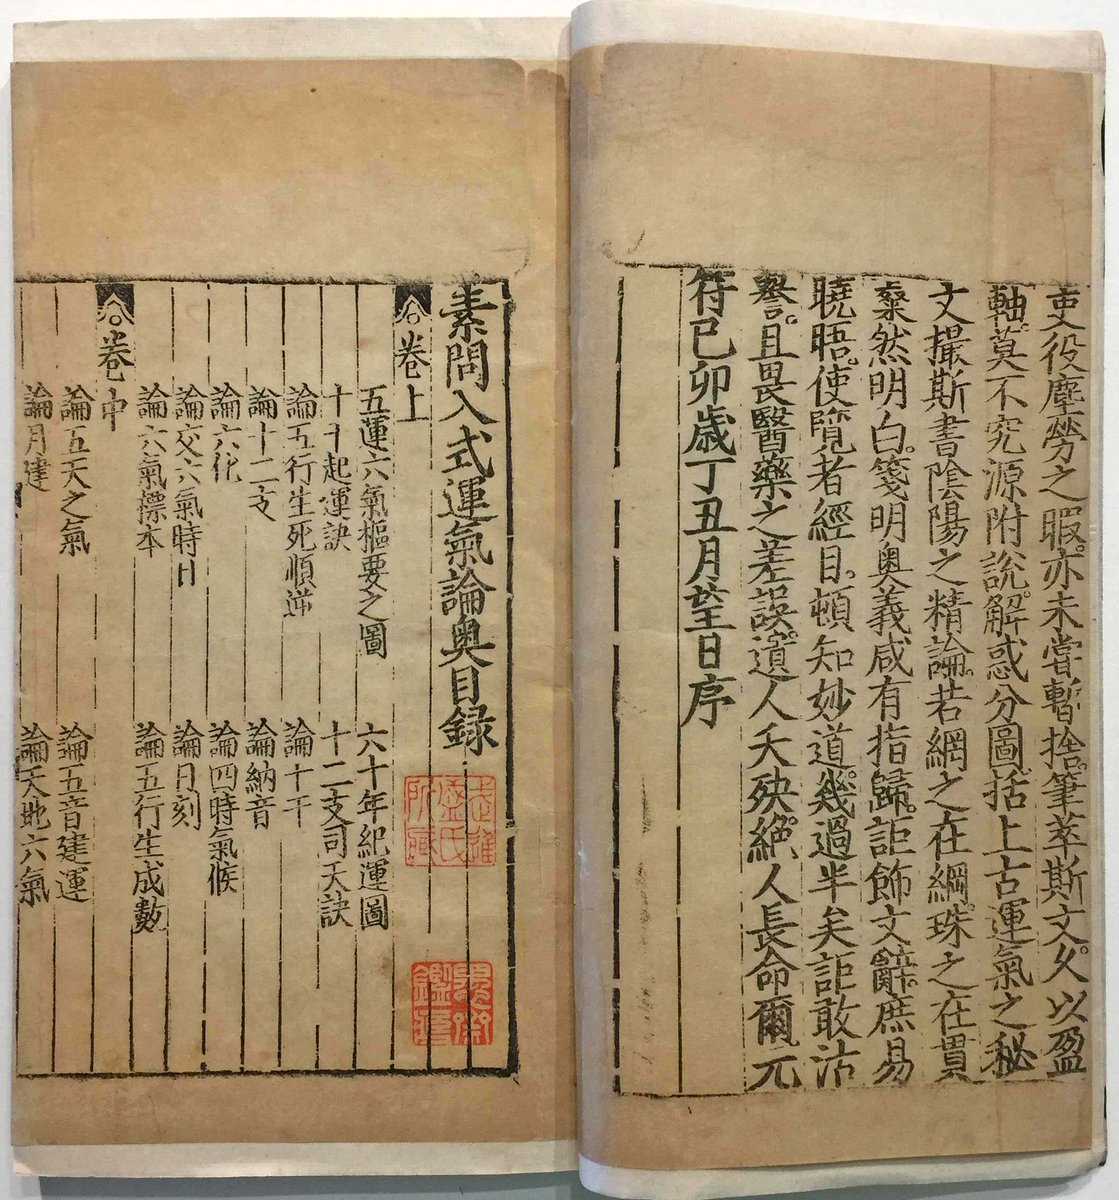 吏役塵勞之暇。亦未嘗暫捨。筆萃斯文。久以盈
軸。莫不究源附說。解惑分圖。括上古運氣之秘
文撮斯書陰陽之精論。若網之在綱。珠之在貫
粲然明白。箋明奥義咸有指歸。詎飾文辭。庶易
曉晤。使覽者經目。頓知妙道。幾過半矣詎敢沽
譽。且畏醫藥之差誤。遺人夭殃。絶人長命爾元
符己卯歲丁丑月望日序
素問入式運氣論奥目録
卷上
五運六氣樞要之圖 六十年紀運圖
十干起運訣 十二支司天訣
論五行生死順逆 論十干
論十二支 論納音
論六化 論四時氣候
論交六氣時日 論日刻
論六氣標本 論五行生成數
卷中
論五天之氣 論五音建運
論月建 論天地六氣